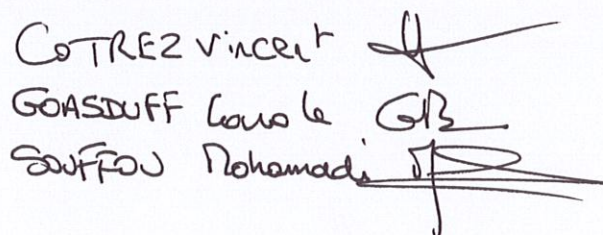 COTREZ Vincent
GOASDUFF Carole GB
SOUFFOU Mohamadi